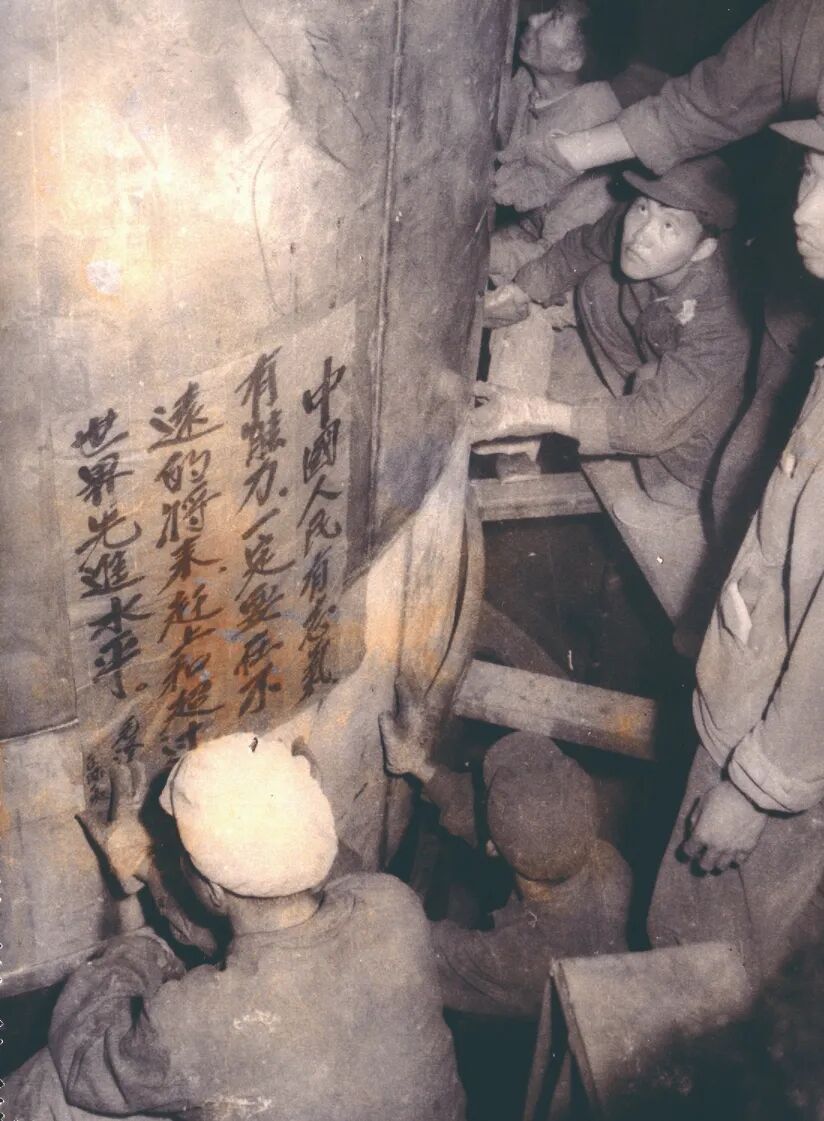 中國人民有志氣
有能力，一定要在不
遠的將来，赶上和超过
世界先進水平。